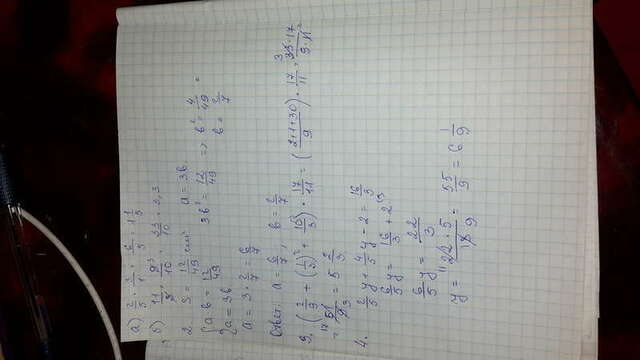 а) 2/5 : 1/3 = 6/5 = 1 1/5
б) 11/3 · 9/10 = 33/10 = 3,3
2. S = 12/49 см² a = 3b
{ab = 12/49 3b² = 12/49 => b² = 4/49
{a = 3b b = 2/7
a = 3 · 2/7 = 6/7
Ответ: a = 6/7, b = 2/7
3. (2/9 + (1/3)² + 10/3) · 17/11 = (2+1+30/9) · 17/11 = 33·17/9·11 =
= 17/3 = 5 2/3
4. 2/5 y + 4/5 y - 2 = 16/3
6/5 y = 16/3 + 2
6/5 y = 22/3
y = 22·5/18 = 55/9 = 6 1/9